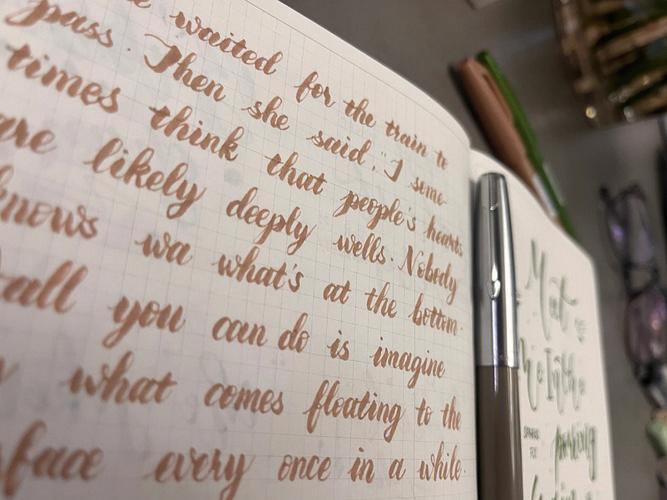 waited for the train to
pass. Then she said, "I some-
times think that people's hearts
are likely deeply wells. Nobody
knows wa what's at the bottom.
all you can do is imagine
what comes floating to the
rface every once in a while.